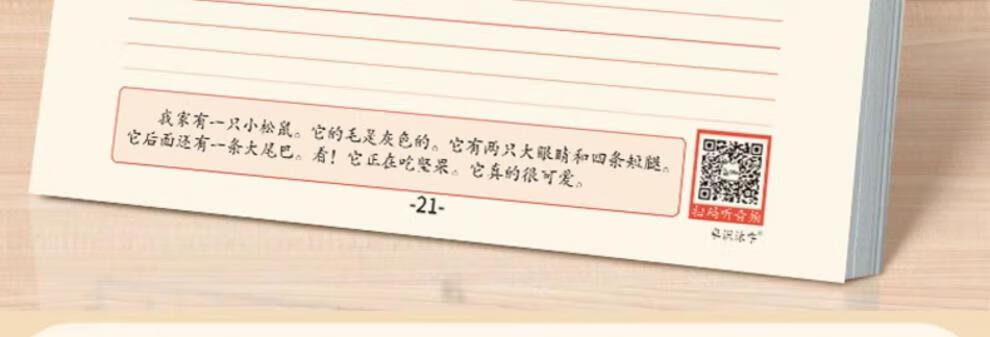 我家有一只小松鼠。它的毛是灰色的。它有两只大眼睛和四条短腿。
它后面还有一条大尾巴。看！它正在吃坚果。它真的很可爱。
-21-
扫码听音频